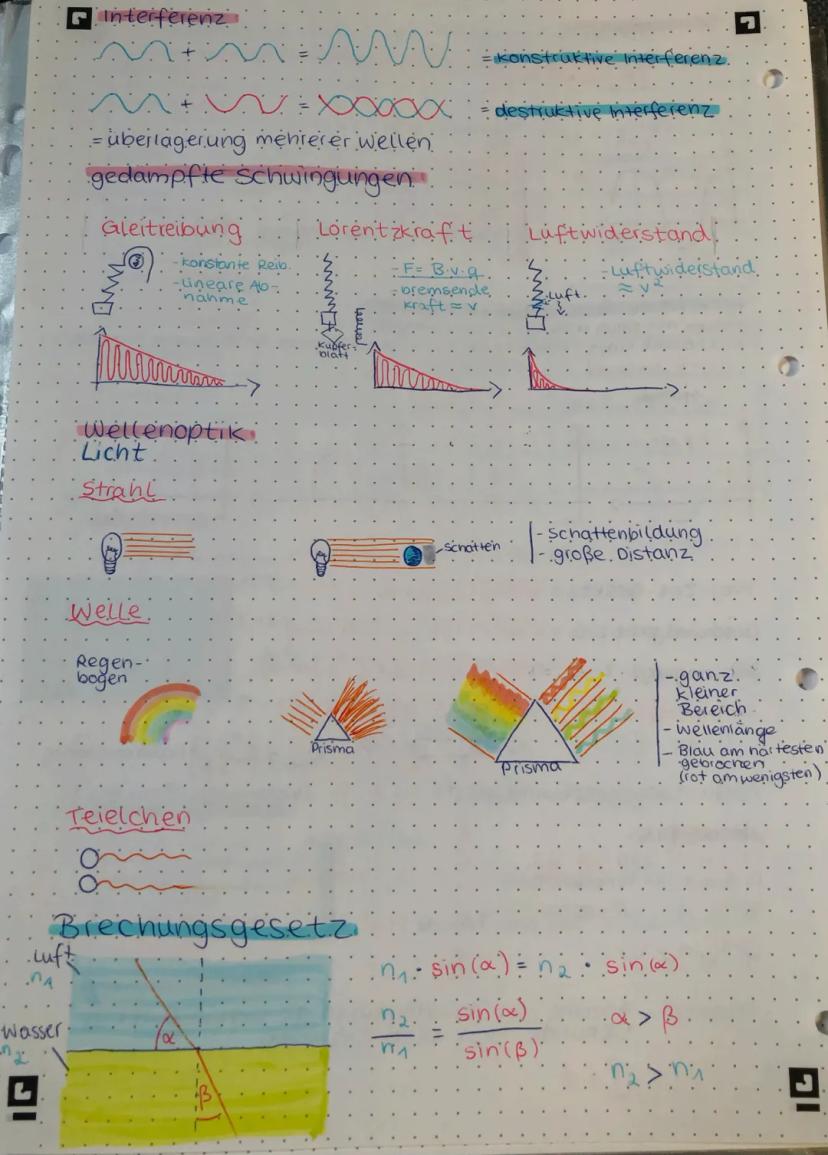 Interferenz
+ = = konstruktive Interferenz
+ = = destruktive Interferenz
= überlagerung mehrerer wellen
gedämpfte Schwingungen
Gleitreibung
- konstante Reib.
- Lineare Ab-
nahme
Lorentzkraft
- F = B·v·q
- bremsende
kraft ≈ v
kupfer-
blatt
Luftwiderstand
- Luftwiderstand
≈ v²
Luft
Wellenoptik
Licht
Strahl
Schatten
- Schattenbildung
- große Distanz
Welle
Regen-
bogen
Prisma
Prisma
- ganz
kleiner
Bereich
- wellenlänge
- Blau am härtesten
gebrochen
(rot am wenigsten)
Teielchen
Brechungsgesetz
Luft
n₁
wasser
n₂
α
β
n₁ · sin(α) = n₂ · sin(α)
n₂/n₁ = sin(α)/sin(β)
α > β
n₂ > n₁